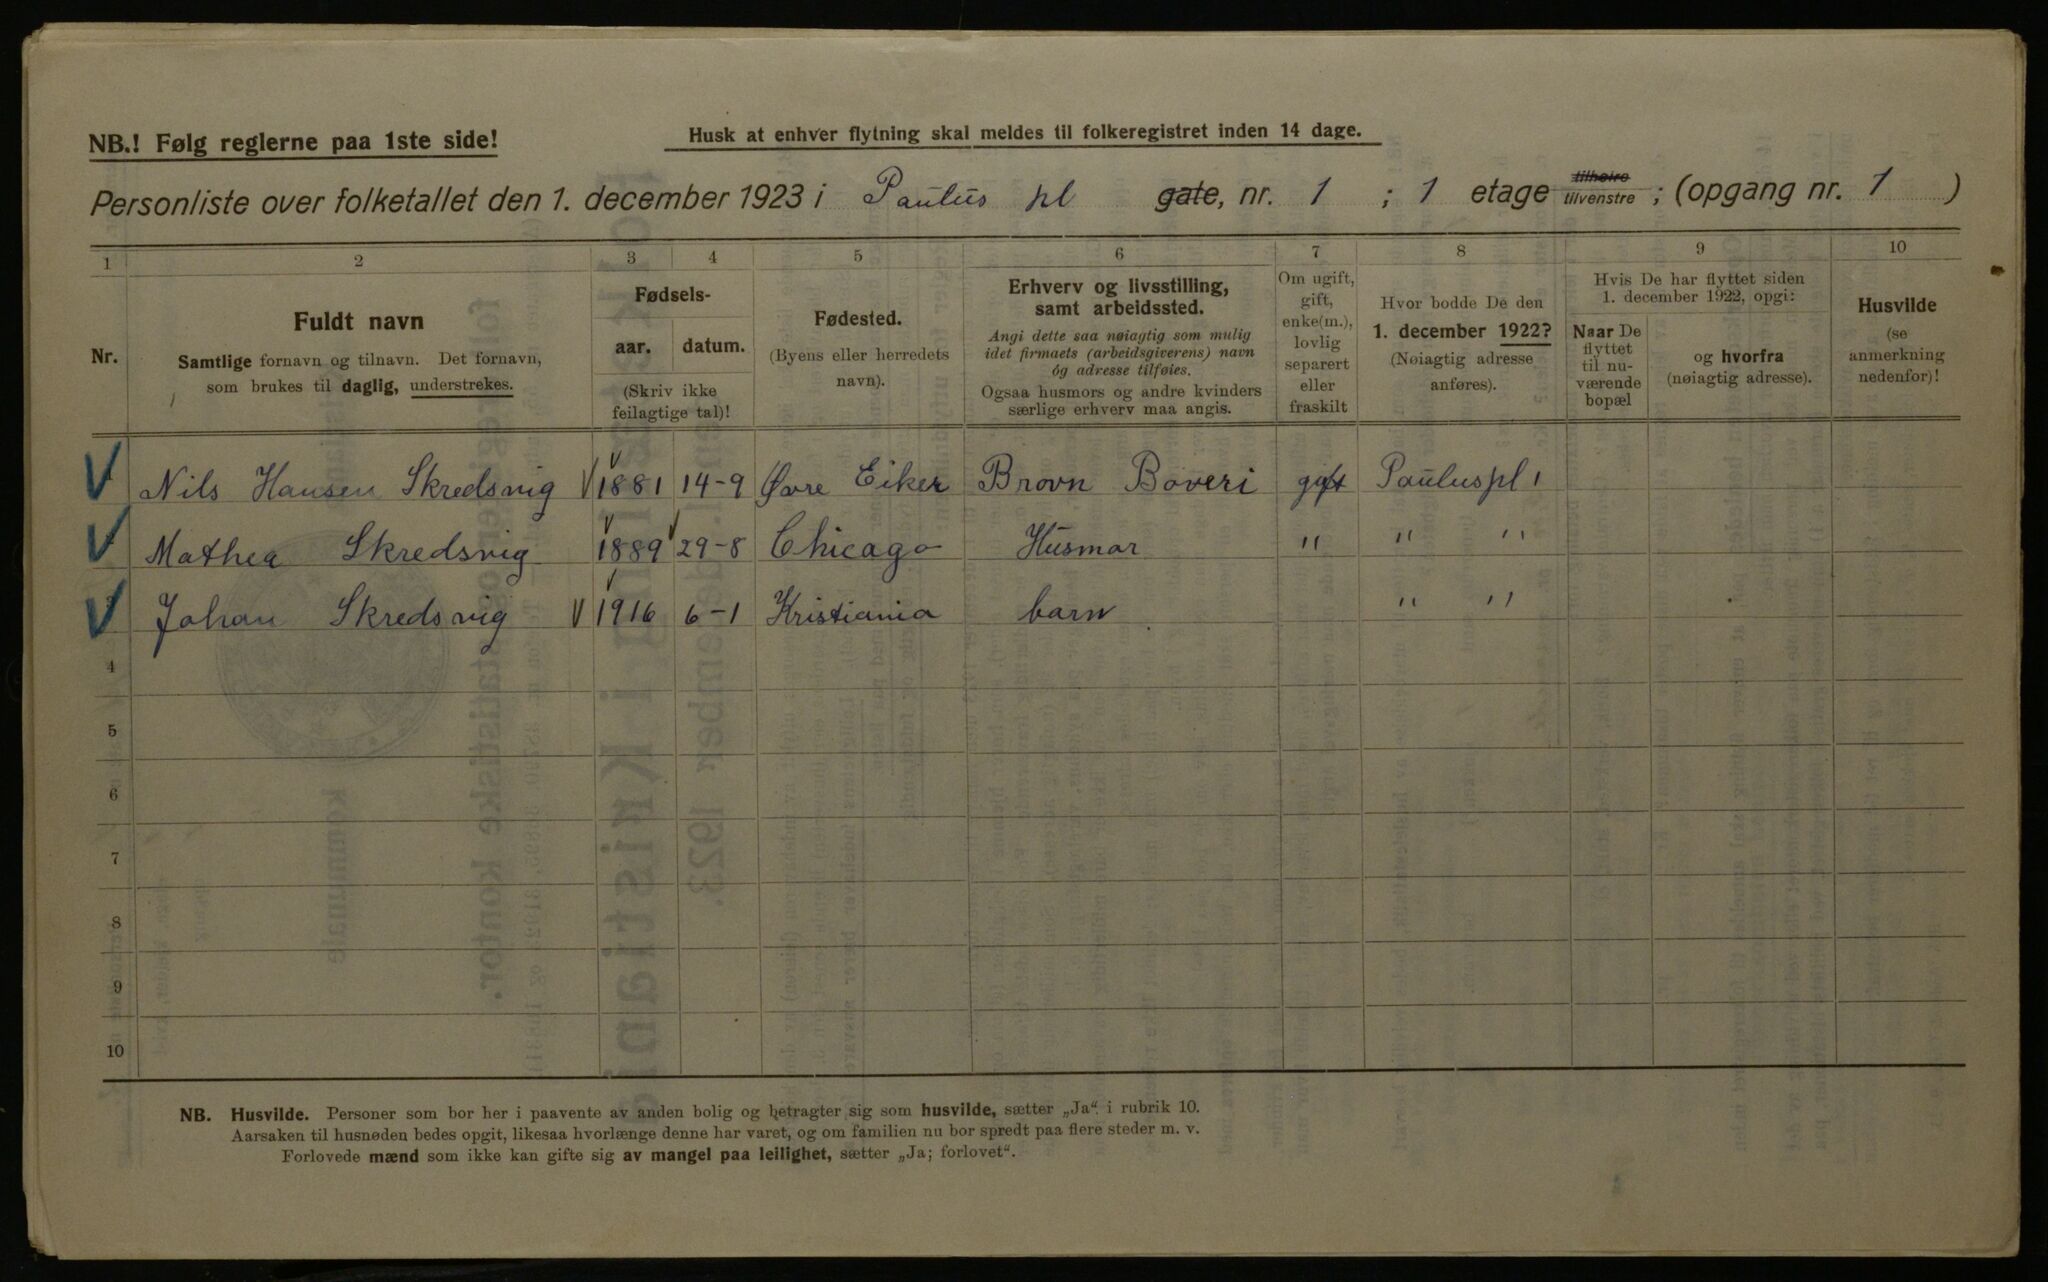 NB.! Følg reglerne paa 1ste side!
Husk at enhver flytning skal meldes til folkeregistret inden 14 dage.
Personliste over folketallet den 1. december 1923 i Paulus pl gate, nr. 1 ; 1 etage tilhøire tilvenstre ; (opgang nr. 1 )
1 2 3 4 5 6 7 8 9 10
Nr.
Fuldt navn
Samtlige fornavn og tilnavn. Det fornavn,
som brukes til daglig, understrekes.
Fødsels-
aar. datum.
(Skriv ikke
feilagtige tal)!
Fødested.
(Byens eller herredets
navn).
Erhverv og livsstilling,
samt arbeidssted.
Angi dette saa nøiagtig som mulig
idet firmaets (arbeidsgiverens) navn
og adresse tilføies.
Ogsaa husmors og andre kvinders
særlige erhverv maa angis.
Om ugift,
gift,
enke(m.),
lovlig
separert
eller
fraskilt
Hvor bodde De den
1. december 1922?
(Nøiagtig adresse
anføres).
Hvis De har flyttet siden
1. december 1922, opgi:
Naar De
flyttet
til nu-
værende
bopæl
og hvorfra
(nøiagtig adresse).
Husvilde
(se
anmerkning
nedenfor)!
Nils Hansen Skredsvig 1881 14-9 Øvre Eiker Brovn Boveri gift Pauluspl 1
Mathea Skredsvig 1889 29-8 Chicago Husmor " " "
Johan Skredsvig 1916 6-1 Kristiania barn " "
4
5
6
7
8
9
10
NB. Husvilde. Personer som bor her i paavente av anden bolig og betragter sig som husvilde, sætter „Ja“ i rubrik 10.
Aarsaken til husnøden bedes opgit, likesaa hvorlænge denne har varet, og om familien nu bor spredt paa flere steder m. v.
Forlovede mænd som ikke kan gifte sig av mangel paa leilighet, sætter „Ja; forlovet“.